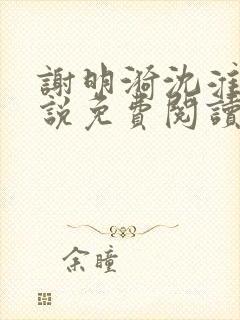 謝明漪沈淮
說免費閱讀
余瞳